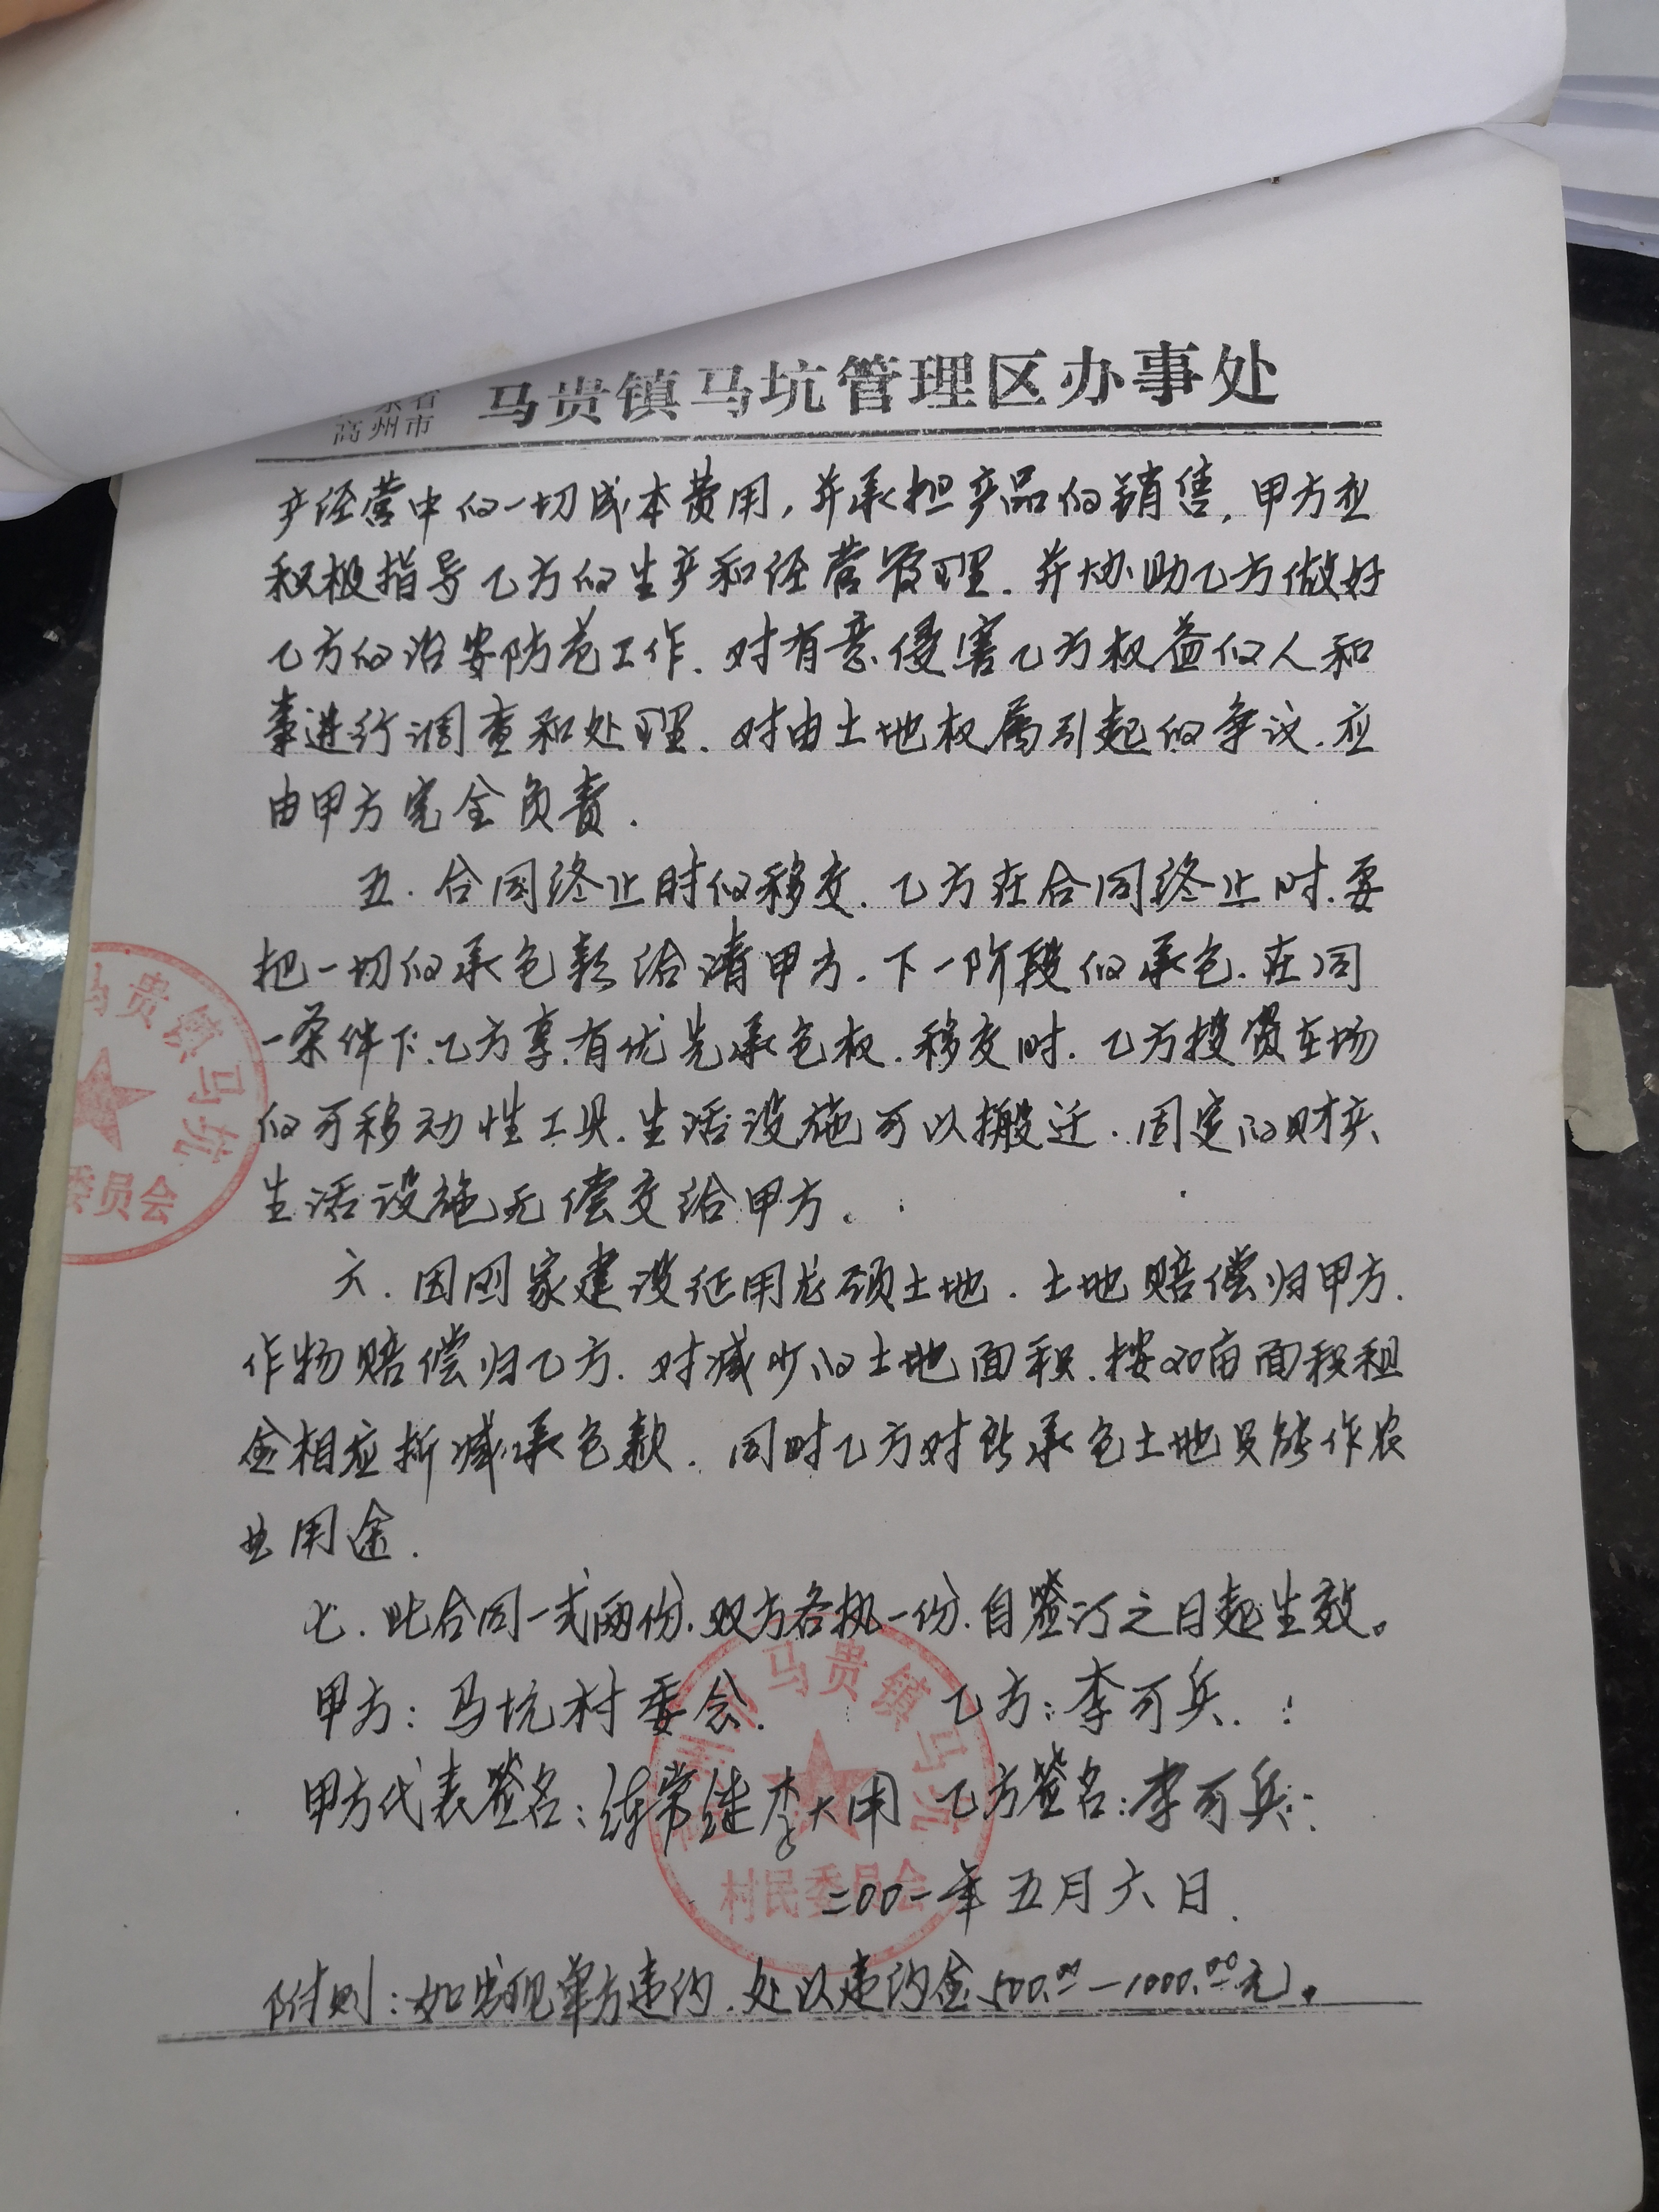 高州市 马贵镇马坑管理区办事处
产经营中的一切成本费用,并承担产品的销售,甲方应
积极指导乙方的生产和经营管理.并协助乙方做好
乙方的治安防范工作.对有意侵害乙方权益的人和
事进行调查和处理.对由土地权属引起的争议.应
由甲方完全负责.
五.合同终止时的移交.乙方在合同终止时.要
把一切的承包款给清甲方.下一阶段的承包.在同
一条件下.乙方享有优先承包权.移交时.乙方投资在场
的可移动性工具.生活设施可以搬迁.固定的财产、
生活设施无偿交给甲方.
马贵镇马坑
委员会
六.因国家建设征用龙颈土地.土地赔偿归甲方.
作物赔偿归乙方.对减少的土地面积.按20亩面积租
金相应折减承包款.同时乙方对所承包土地只能作农
业用途.
七.此合同一式两份.双方各执一份.自签订之日起生效。
甲方:马坑村委会. 乙方:李可兵.
甲方代表签名: 李大用 乙方签名:李可兵
马贵镇马坑
村民委员会
二00一年五月六日.
附则:如发现单方违约.处以违约金500.00—1000.00元.